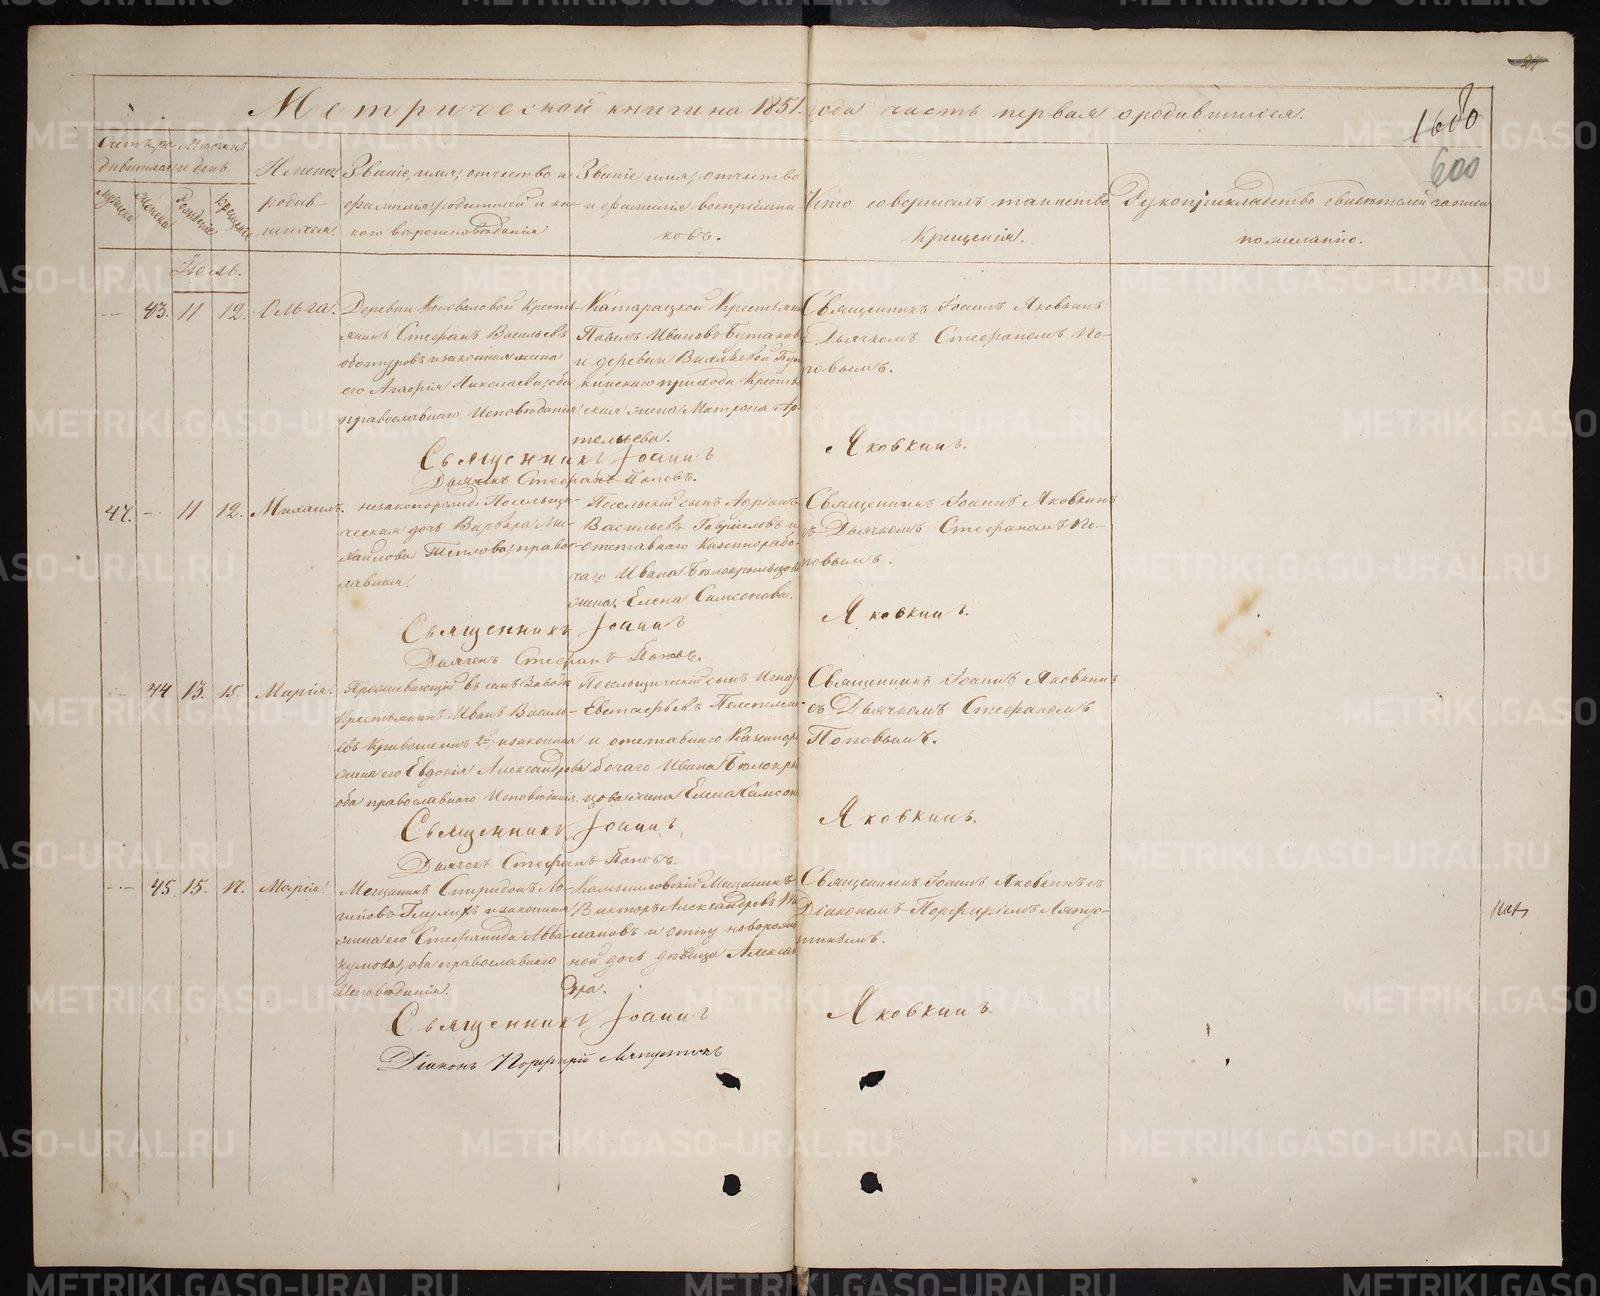 Метрической книги на 1851 года часть первая о родившихся.
1680
600
Счетъ ро-
дившихся
Мѣсяцъ
и день
мужеска
женска
рожденія
крещенія
Имена
родив-
шихся.
Званіе, имя, отчество и
фамилія родителей и ка-
кого вѣроисповѣданія
Званіе, имя, отчество
и фамилія воспріемни-
ковъ.
Кто совершалъ таинство
Крещенія.
Рукоприкладство свидѣтелей записи
по желанію.
Іюль.
43. 11 12. Ольга.
Деревни Коноваловой Кресть-
янинъ Стефанъ Васильевъ
и законная жена
его Агафія Николаева, оба
православнаго Исповѣданія
Катарацкой Крестьянинъ
Павелъ Ивановъ Бутаковъ
и деревни
приходa Кресть-
янская жена Матрона Ар-
тельева.
Священникъ Іоаннъ Яковкинъ
съ Дьячкомъ Стефаномъ По-
повымъ.
Священникъ Іоаннъ Яковкинъ.
Дьячекъ Стефанъ Поповъ.
47. 11. 12. Михаилъ.
незаконорожд. Посельщи-
ческая дочь Варвара Ми-
хайлова Теплова, право-
славная.
Посельскій сынъ Адріанъ
Васильевъ Гавриловъ и
отставнаго Казеннорабо-
чаго Ивана Бѣлокрыльцова
жена, Елена Самсонова.
Священникъ Іоаннъ Яковкинъ
съ Дьячкомъ Стефаномъ По-
повымъ.
Священникъ Іоаннъ Яковкинъ.
Дьячекъ Стефанъ Поповъ.
44 13. 15. Марія.
Проживающій въ семъ Заводѣ
Крестьянинъ Иванъ Василь-
евъ и законная
жена его Евдокія Александрова
оба православнаго Исповѣданія.
Посельщическій сынъ
Евстафьевъ
и отставнаго Казеннора-
бочаго Ивана Бѣлокры-
цова жена Елена Самсон
Священникъ Іоаннъ Яковкинъ
съ Дьячкомъ Стефаномъ
Поповымъ.
Священникъ Іоаннъ Яковкинъ.
Дьячекъ Стефанъ Поповъ.
45. 15. 17. Марія.
Мещанинъ Спиридонъ Ло-
гиновъ Глухихъ и законная
жена его Стефанида Авва-
кумова, оба православнаго
Исповѣданія.
Камышловскій Мещанинъ
Викторъ Александровъ
и отцу новорожд
ной дочь дѣвица Алексан
дра.
Священникъ Іоаннъ Яковкинъ съ
Діакономъ Порфиріемъ Ляпу-
стинымъ.
Священникъ Іоаннъ Яковкинъ
Діаконъ Порфирій Ляпустинъ